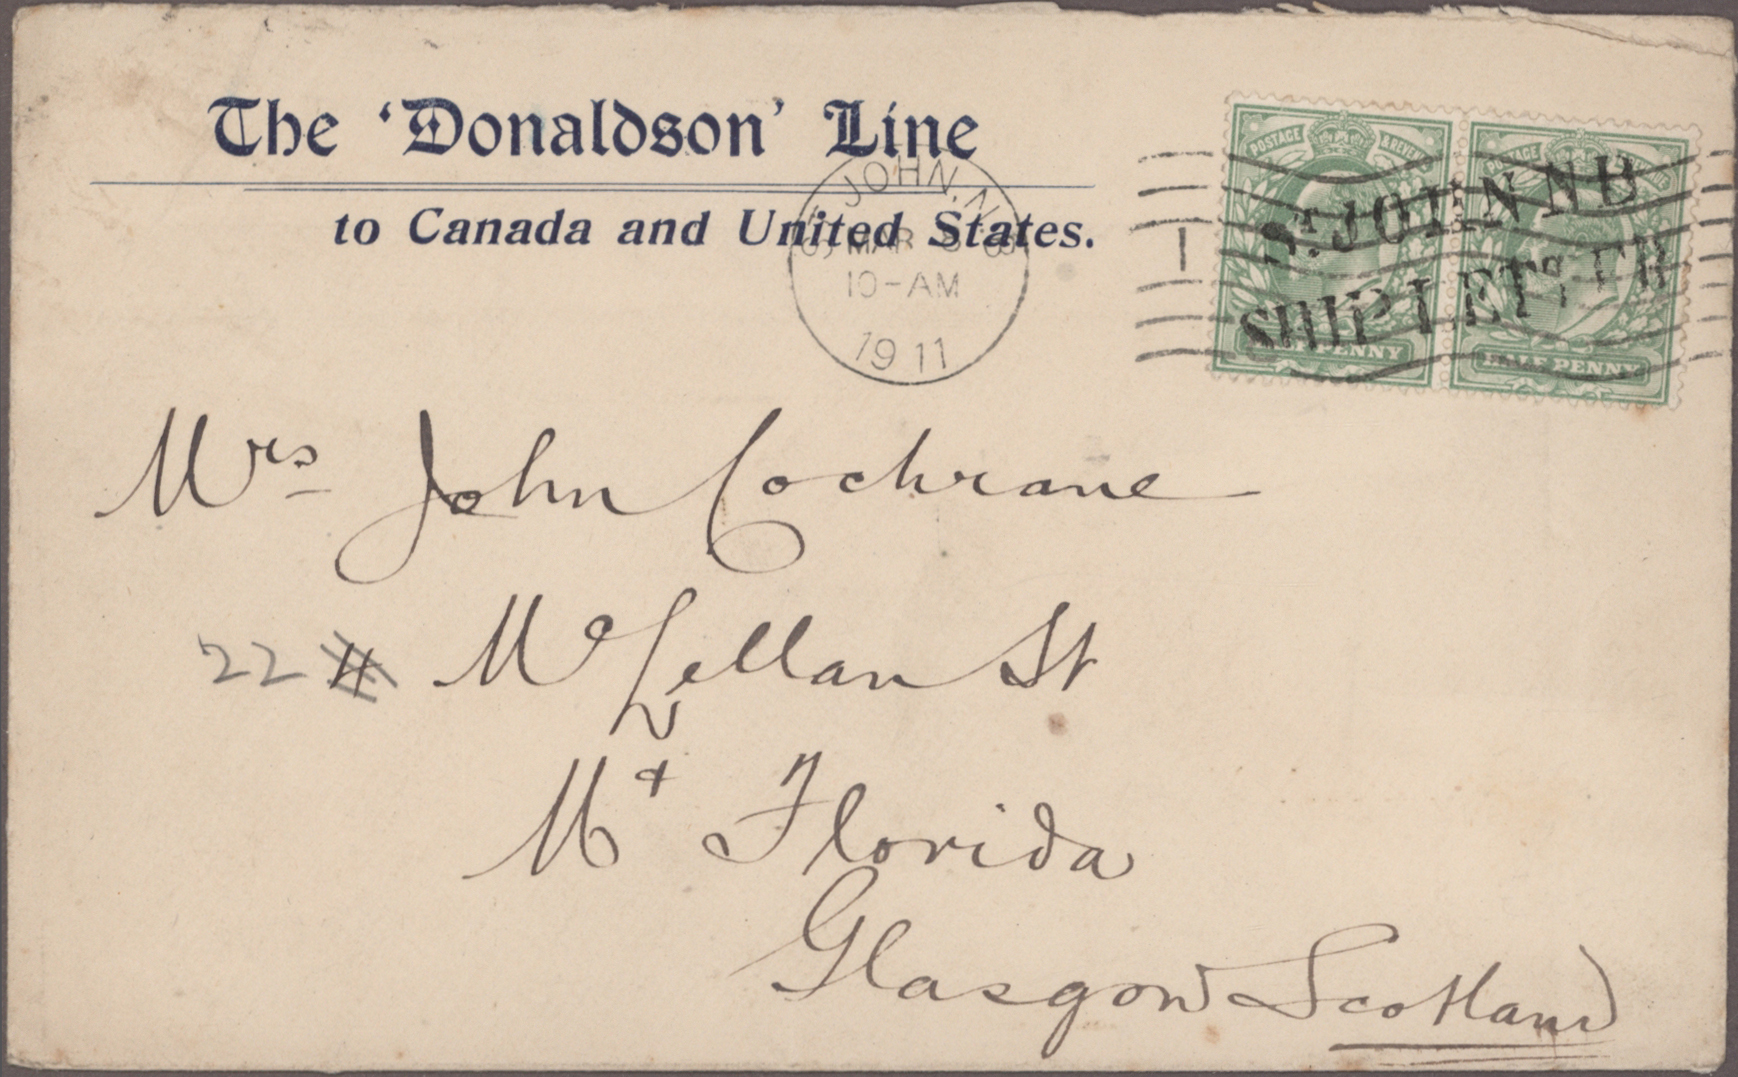 The 'Donaldson' Line
to Canada and United States.
JOHN, N.B.
MAR
10-AM
1911
1
POSTAGE & REVENUE
POSTAGE & REVENUE
St. JOHN NB
SHIP LETTER
HALF PENNY
HALF PENNY
Mrs John Cochrane
22 McLellan St
Mt Florida
Glasgow Scotland